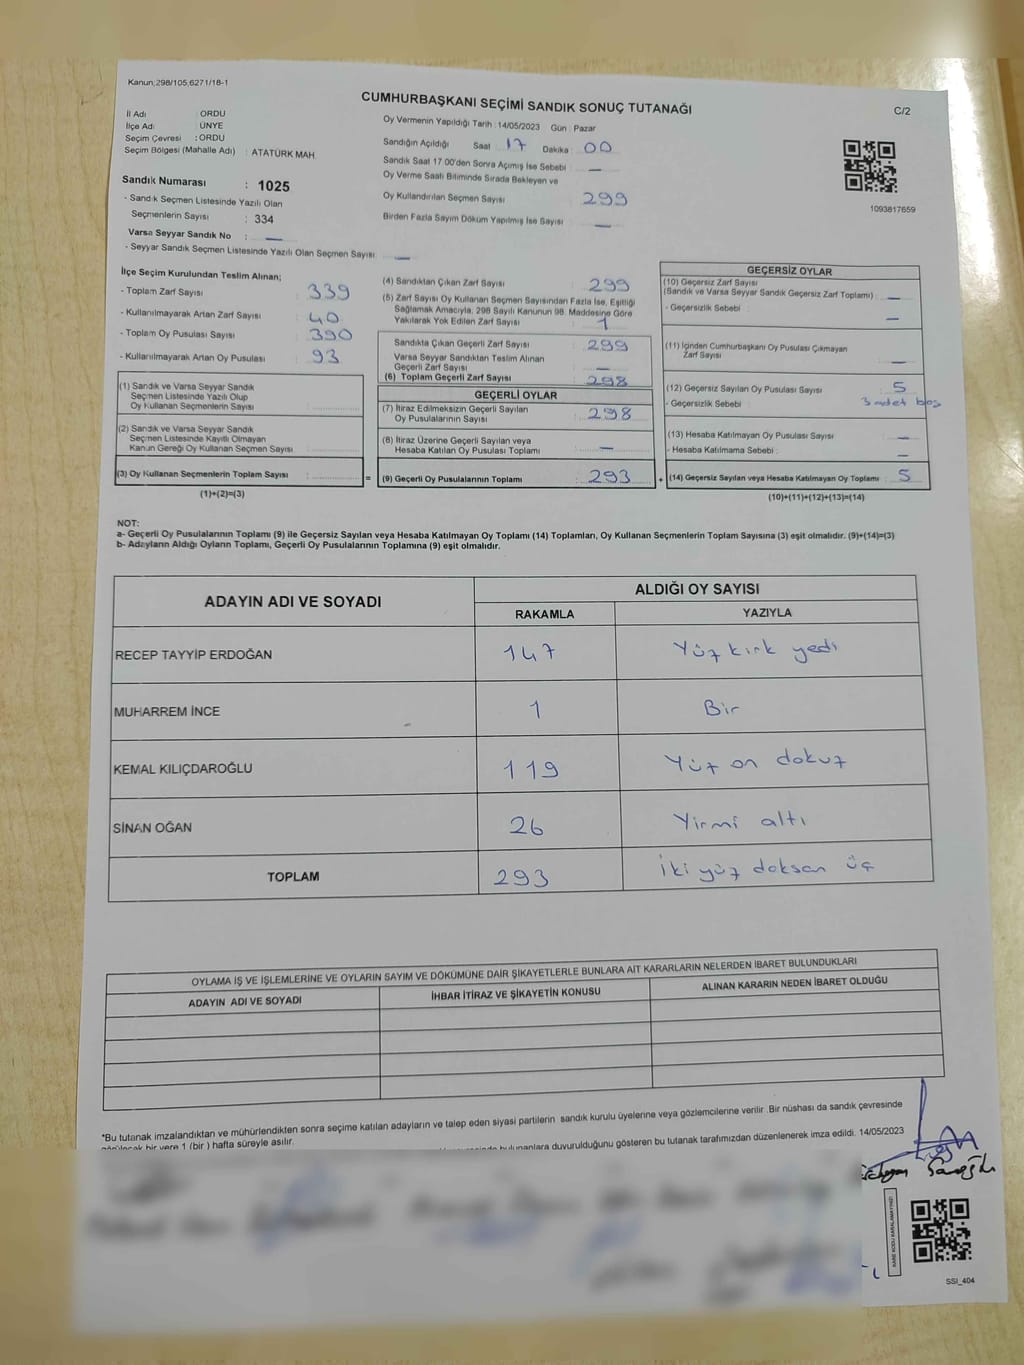 Kanun;298/105,6271/18-1
CUMHURBAŞKANI SEÇİMİ SANDIK SONUÇ TUTANAĞI
C/2
İl Adı : ORDU
İlçe Adı : ÜNYE
Seçim Çevresi : ORDU
Seçim Bölgesi (Mahalle Adı) : ATATÜRK MAH.
Sandık Numarası : 1025
- Sandık Seçmen Listesinde Yazılı Olan
Seçmenlerin Sayısı : 334
Varsa Seyyar Sandık No : —
- Seyyar Sandık Seçmen Listesinde Yazılı Olan Seçmen Sayısı : —
Oy Vermenin Yapıldığı Tarih : 14/05/2023 Gün : Pazar
Sandığın Açıldığı Saat 17 Dakika : 00
Sandık Saat 17.00'den Sonra Açımış İse Sebebi : —
Oy Verme Saati Bitiminde Sırada Bekleyen ve
Oy Kullandırılan Seçmen Sayısı : 299
Birden Fazla Sayım Döküm Yapılmış İse Sayısı : —
1093817659
İlçe Seçim Kurulundan Teslim Alınan;
- Toplam Zarf Sayısı : 339
- Kullanılmayarak Artan Zarf Sayısı : 40
- Toplam Oy Pusulası Sayısı : 390
- Kullanılmayarak Artan Oy Pusulası : 93
(1) Sandık ve Varsa Seyyar Sandık
Seçmen Listesinde Yazılı Olup
Oy Kullanan Seçmenlerin Sayısı :
(2) Sandık ve Varsa Seyyar Sandık
Seçmen Listesinde Kayıtlı Olmayan
Kanun Gereği Oy Kullanan Seçmen Sayısı :
(3) Oy Kullanan Seçmenlerin Toplam Sayısı : =
(1)+(2)=(3)
(4) Sandıktan Çıkan Zarf Sayısı : 299
(5) Zarf Sayısı Oy Kullanan Seçmen Sayısından Fazla İse, Eşitliği
Sağlamak Amacıyla, 298 Sayılı Kanunun 98. Maddesine Göre
Yakılarak Yok Edilen Zarf Sayısı : 1
Sandıkta Çıkan Geçerli Zarf Sayısı : 299
Varsa Seyyar Sandıktan Teslim Alınan
Geçerli Zarf Sayısı : —
(6) Toplam Geçerli Zarf Sayısı : 298
GEÇERLİ OYLAR
(7) İtiraz Edilmeksizin Geçerli Sayılan
Oy Pusulalarının Sayısı : 298
(8) İtiraz Üzerine Geçerli Sayılan veya
Hesaba Katılan Oy Pusulası Toplamı : —
(9) Geçerli Oy Pusulalarının Toplamı : 293 +
GEÇERSİZ OYLAR
(10) Geçersiz Zarf Sayısı
(Sandık ve Varsa Seyyar Sandık Geçersiz Zarf Toplamı) : —
- Geçersizlik Sebebi : —
(11) İçinden Cumhurbaşkanı Oy Pusulası Çıkmayan
Zarf Sayısı : —
(12) Geçersiz Sayılan Oy Pusulası Sayısı : 5
- Geçersizlik Sebebi : 3 adet boş
(13) Hesaba Katılmayan Oy Pusulası Sayısı : —
- Hesaba Katılmama Sebebi : —
(14) Geçersiz Sayılan veya Hesaba Katılmayan Oy Toplamı : 5
(10)+(11)+(12)+(13)=(14)
NOT:
a- Geçerli Oy Pusulalarının Toplamı (9) ile Geçersiz Sayılan veya Hesaba Katılmayan Oy Toplamı (14) Toplamları, Oy Kullanan Seçmenlerin Toplam Sayısına (3) eşit olmalıdır. (9)+(14)=(3)
b- Adayların Aldığı Oyların Toplamı, Geçerli Oy Pusulalarının Toplamına (9) eşit olmalıdır.
ADAYIN ADI VE SOYADI
ALDIĞI OY SAYISI
RAKAMLA YAZIYLA
RECEP TAYYİP ERDOĞAN 147 Yüz kırk yedi
MUHARREM İNCE 1 Bir
KEMAL KILIÇDAROĞLU 119 Yüz on dokuz
SİNAN OĞAN 26 Yirmi altı
TOPLAM 293 İki yüz doksan üç
OYLAMA İŞ VE İŞLEMLERİNE VE OYLARIN SAYIM VE DÖKÜMÜNE DAİR ŞİKAYETLERLE BUNLARA AİT KARARLARIN NELERDEN İBARET BULUNDUKLARI
ADAYIN ADI VE SOYADI İHBAR İTİRAZ VE ŞİKAYETİN KONUSU ALINAN KARARIN NEDEN İBARET OLDUĞU
*Bu tutanak imzalandıktan ve mühürlendikten sonra seçime katılan adayların ve talep eden siyasi partilerin sandık kurulu üyelerine veya gözlemcilerine verilir .Bir nüshası da sandık çevresinde
görülecek bir yere 1 (bir ) hafta süreyle asılır.
bulunanlara duyurulduğunu gösteren bu tutanak tarafımızdan düzenlenerek imza edildi. 14/05/2023
SSI_404